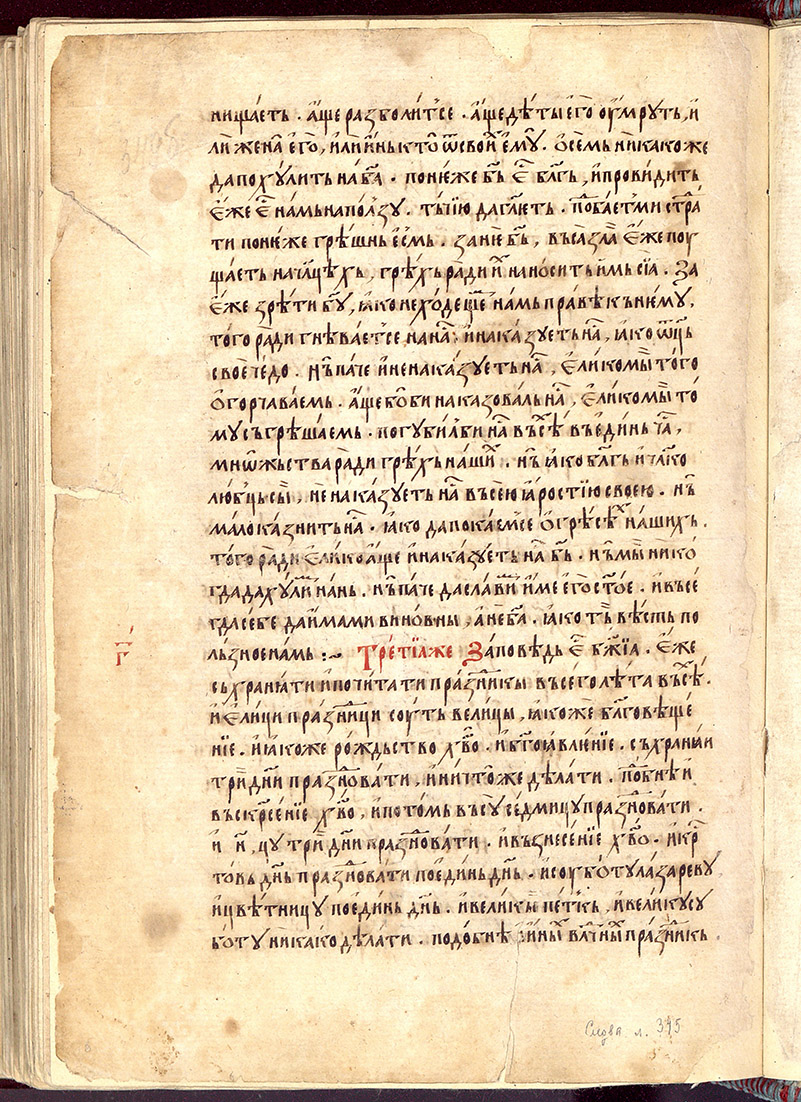 нищаѐть . а҆́ще разболи́т̾се . а҆́ще дѣ́ты е҆го̀ оу҆́мрꙋть , и҆
лѝ жена̀ е҆го̀ , и҆лѝ и҆́нь кто̀ ѿ свои́х е҆мꙋ̀ . ѻ҆ се́мь ника́коже
да похꙋ́лить на б҃а . поне́же бь҃ є҆с̑ бл҃гь , и҆ прови́дить
є҆́же є҆с̑ на́мь на по́лзꙋ . ты́ию да гл҃ѥть . по̀баѐт ми стра̀
ти поне́же грѣ́шнь є҆́смь . занѐ бь҃ , въса̀ зла̀а є҆́же поꙋ
щаѐть на чл҃цѣхь , грѣ́хь ра̀ди и҆̀х нано́сить и҆̀мь сїа̀ . За
є҆́же зрѣ́ти бг҃ꙋ , ꙗ҆́ко не ходе́щїе на́мь пра́вѣ къ не́мꙋ ,
то́го ра̀ди гнѣ́ваѐт̾се на на̑с . и҆ нака́зꙋеть на̑с , ꙗ҆́ко ѿц҃ь
своѐ че́до . нъ̀ па́че и҆ не нака́зꙋеть на̑с , є҆ли́ко мы̀ то́го
ѻ҆горчава́емь . а҆́ще бо̀ би наказова́ль на̑с , є҆ли́ко мы̀ то́
мꙋ съгрѣша́емь . погꙋби́л би на̑с въ́сѣ́х въ є҆ди́нь ча̑с ,
мнѡ́жьства ра́ди грѣ́хь на́ши́х . нъ̀ ꙗ҆́ко бл҃гь и҆ чл҃ко
лю́бць сы́и , не нака́зꙋеть на̑с въсе́ю ꙗ҆́ростїю свое́ю . нъ̀
ма́ло ка́знить на̑с . ꙗ҆́ко да пока́ем̾се ѻ҆ грѣ́сѣ́х на́шихь .
то́го ра̀ди є҆ли́ко а҆́ще и҆ нака́зꙋеть на̑с бь҃ . нъ̀ мы̀ нико́
гда да хꙋ́лим на́нь . нъ̀ па́че да сла́вим и҆́ме е҆го̀ ст҃ое . и҆ въсе́
гда себѐ да и҆́мами вино́вны , а҆ не б҃а . ꙗ҆́ко тъ̀ вѣ́сть по
льзное на́мь :~ Тре́тїа́же За́повѣдь є҆с̑ бж҃їа . Є҆́же
г҃
съхранꙗ́ти и҆ почита́ти пра́знникы въсего̀ лѣ́та въ́сѣ .
и҆ є҆ли́ци пра́зници соу́ть вели́цы , ꙗ҆́коже бл҃говѣще́
нїе . и҆ ꙗ҆́коже ро́ждьство хв҃о . и҆ бг҃оꙗвле́нїе . съхра́ныи
трѝ дн҃и пра́зновати , и҆ ничто́же дѣ́лати . по̀бнѣ и҆
въскр҃се́нїе хв҃о , и҆ пото́мь въсꙋ̀ седми́цꙋ пра́зновати .
и҆ н҃ , цꙋ трѝ дн҃и пра́зновати . и҆ възнесе́нїе хв҃о . и҆ кр̑
товь дн҃ь пра́зновати по є҆ди́нь дн҃ь . и҆ соуботꙋ ла́заревꙋ
и҆ цвѣ́тницꙋ по є҆ди́нь дн҃ь . и҆ вели́кы пе́т̾кь , и҆ вели́кꙋ сꙋ
ботꙋ ника́ко дѣ́лати . подо́бнѣ и҆ и҆́ным влⷣчным пра́зникь
Слова л. 395